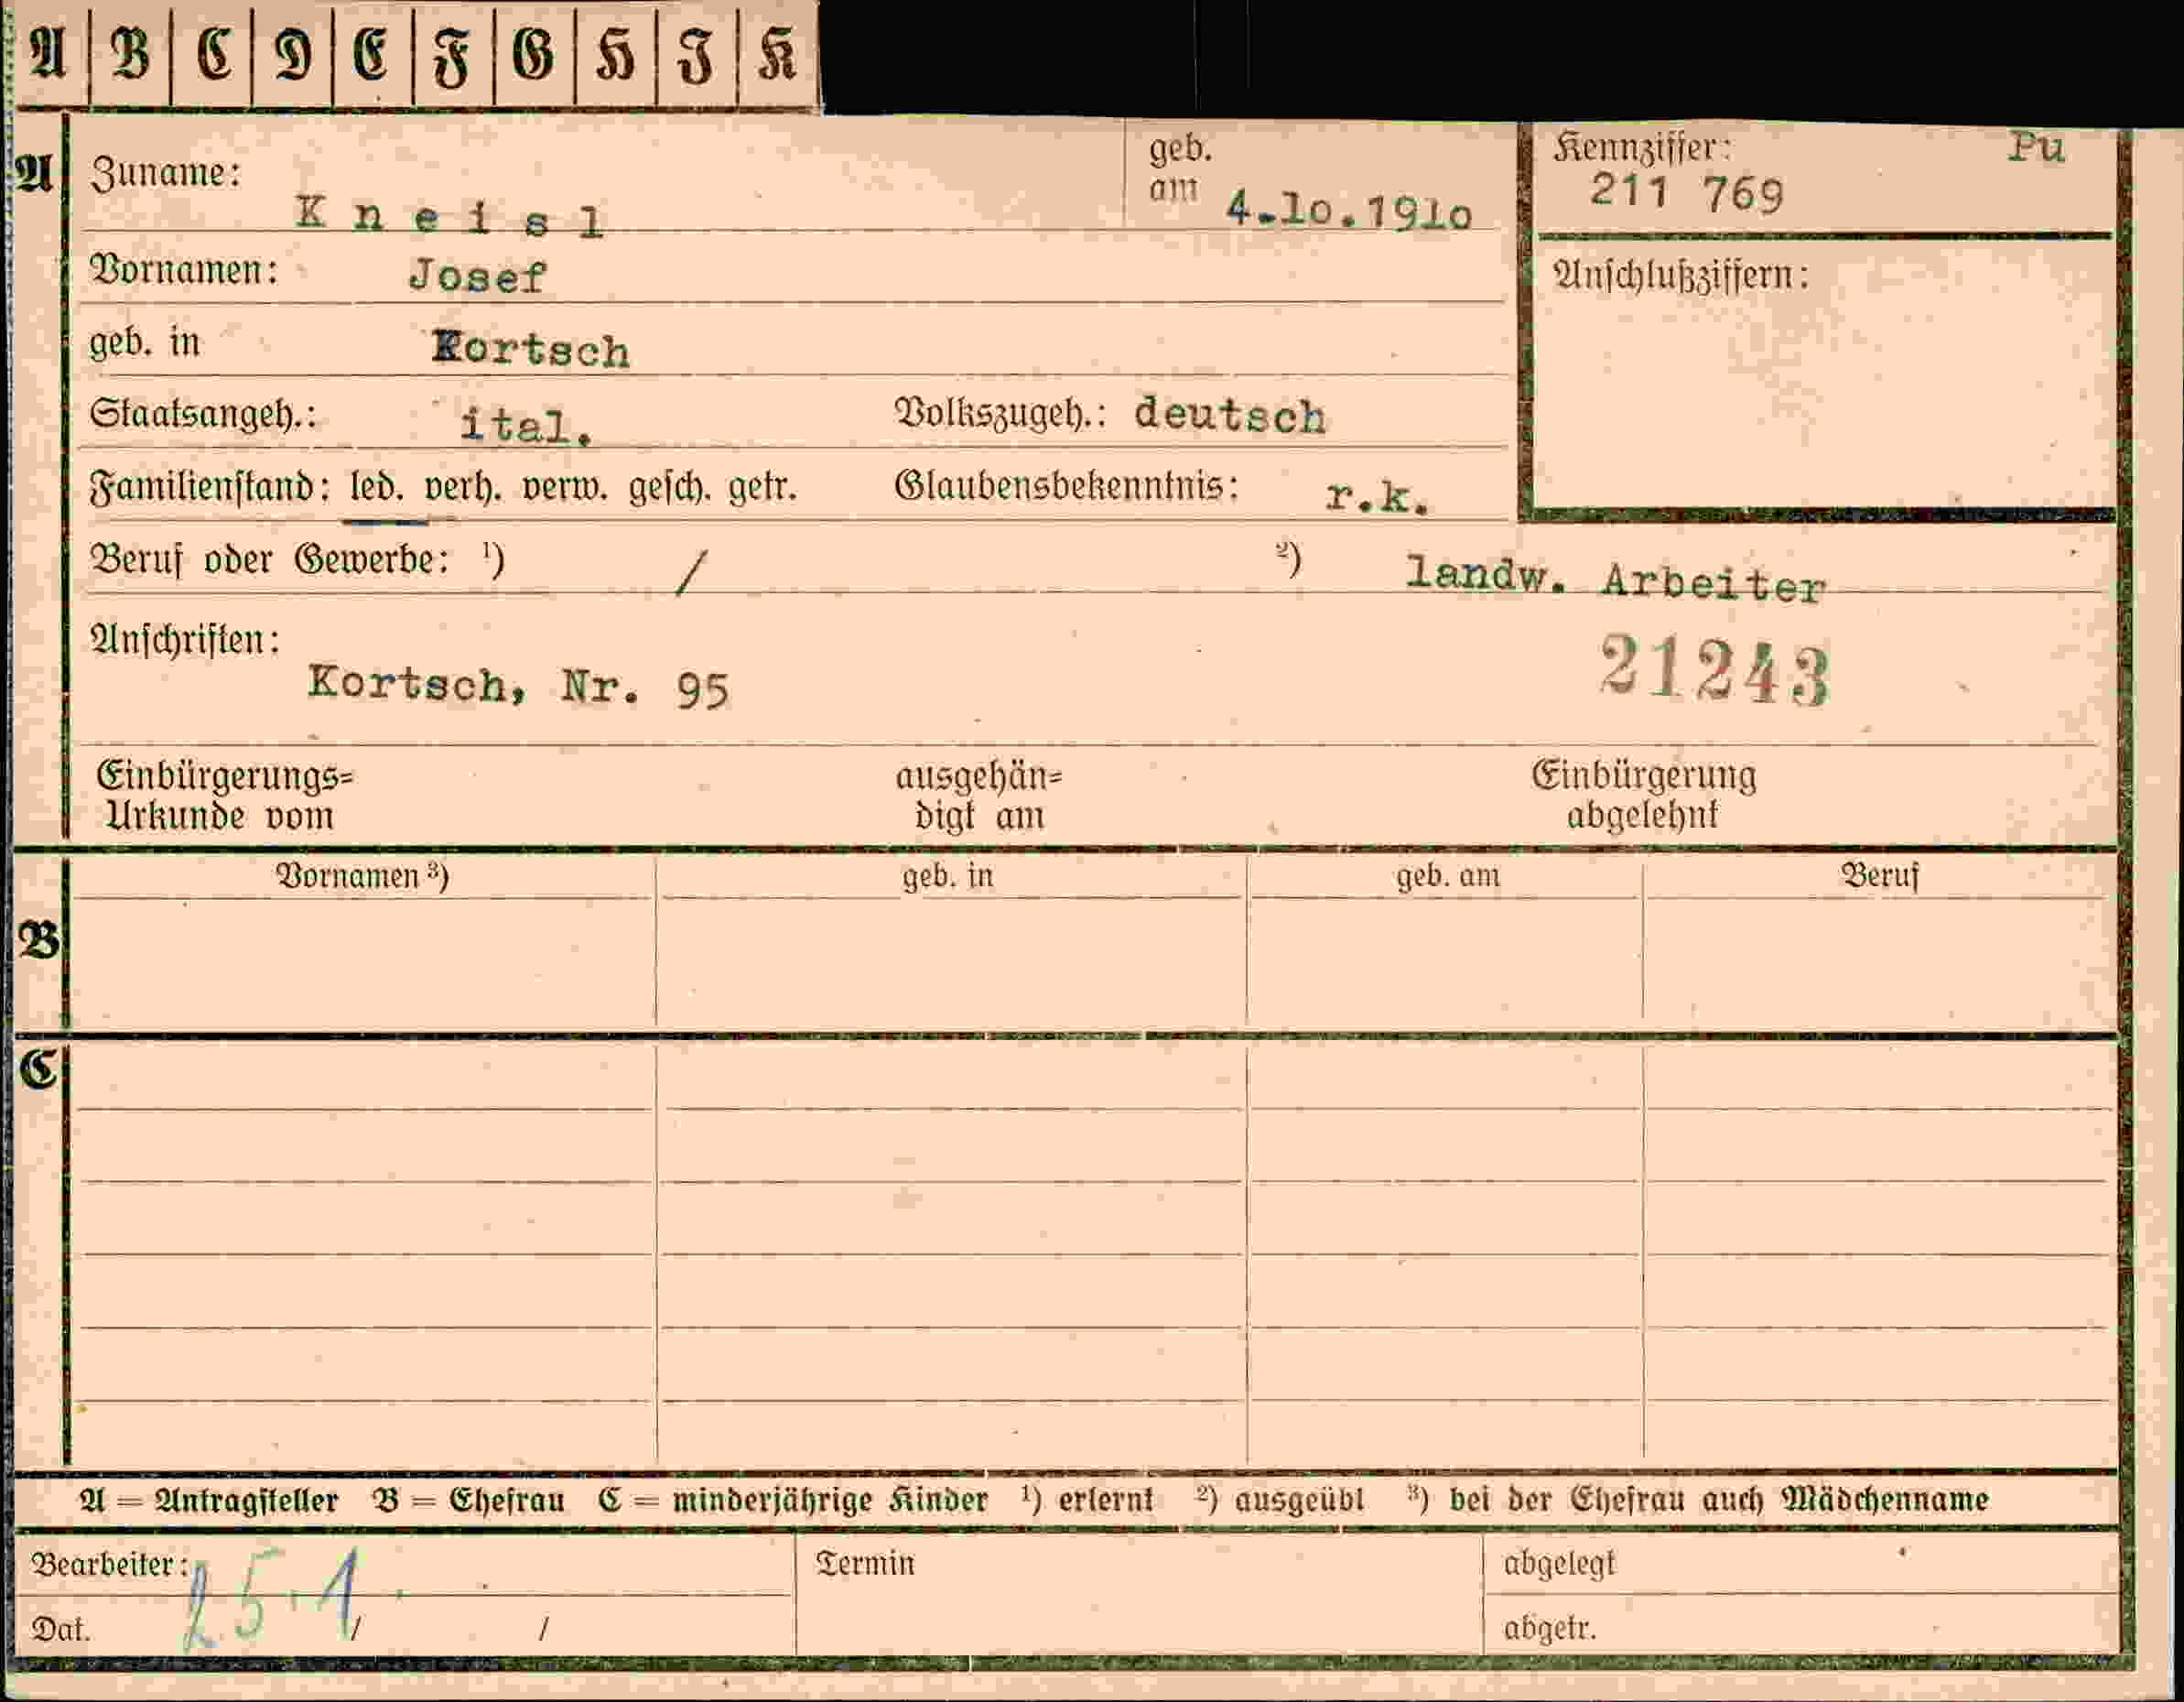 A B C D E F G H I K
A Zuname: K n e i s l geb. am 4.10.1910 Kennziffer: Pu
211 769
Vornamen: Josef
Anschlußziffern:
geb. in Kortsch
Staatsangeh.: ital. Volkszugeh.: deutsch
Familienstand: led. verh. verw. gesch. getr. Glaubensbekenntnis: r.k.
Beruf oder Gewerbe: ¹) / ²) landw. Arbeiter
Anschriften:
Kortsch, Nr. 95 21243
Einbürgerungs= ausgehän= Einbürgerung
Urkunde vom digt am abgelehnt
Vornamen ³) geb. in geb. am Beruf
B
C
A = Antragsteller B = Ehefrau C = minderjährige Kinder ¹) erlernt ²) ausgeübt ³) bei der Ehefrau auch Mädchenname
Bearbeiter: 25.1. Termin abgelegt
Dat. / / abgetr.